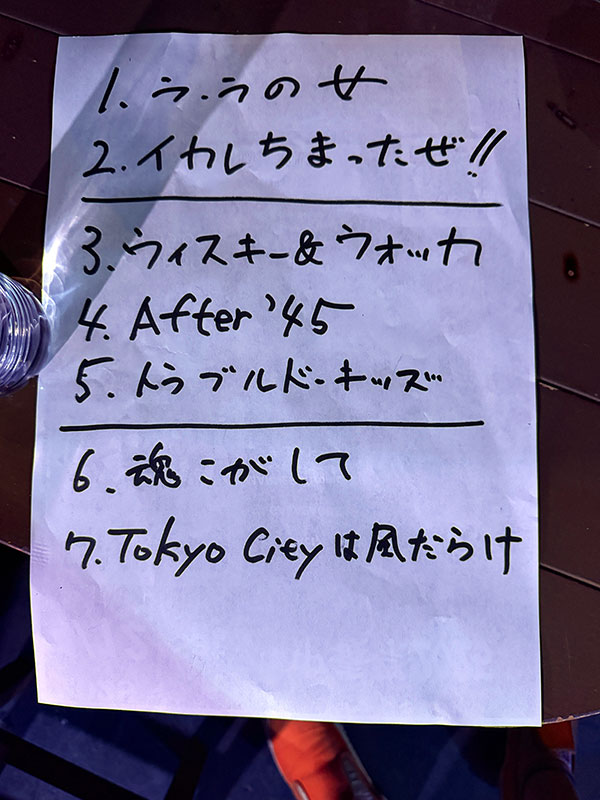 1. う.うの女
2. イカレちまったぜ!!
3. ウィスキー&ウォッカ
4. After '45
5. トラブルド・キッズ
6. 魂こがして
7. Tokyo Cityは風だらけ